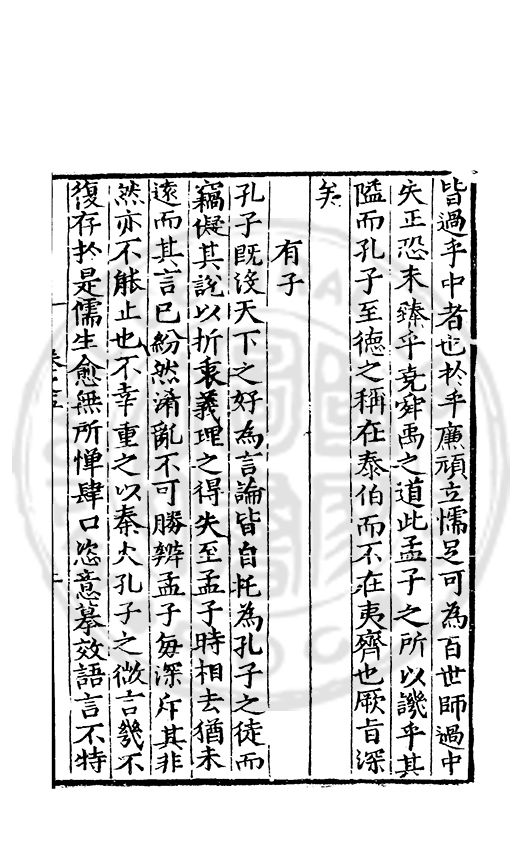 皆過乎中者也於乎廉頑立懦足可為百世師過中
失正恐未臻乎堯舜禹之道此孟子之所以譏乎其
隘而孔子至德之稱在泰伯而不在夷齊也厥旨深
矣
有子
孔子既沒天下之好為言論皆自托為孔子之徒而
竊儗其說以折衷義理之得失至孟子時相去猶未
遠而其言已紛然淆亂不可勝辨孟子每深斥其非
然亦不能止也不幸重之以秦火孔子之微言幾不
復存於是儒生愈無所憚肆口恣意摹效語言不特